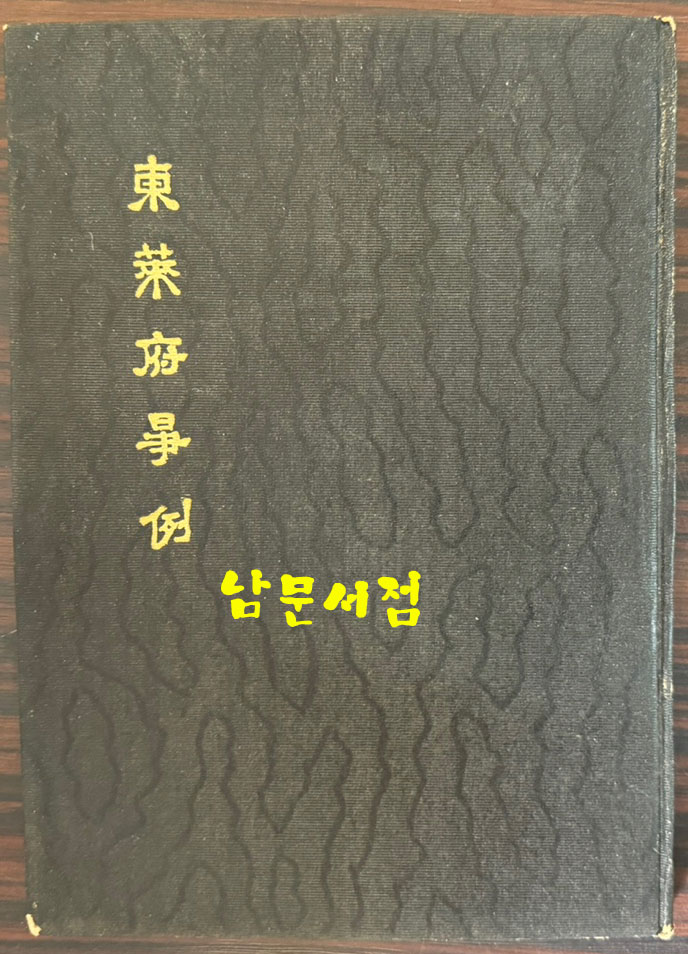 東萊府事例
남문서점